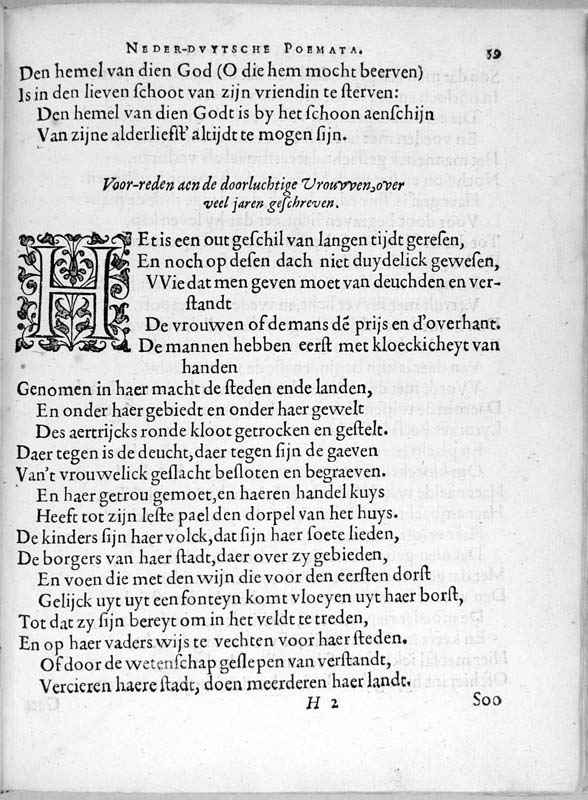 NEDER-DVYTSCHE POEMATA. 59
Den hemel van dien God (O die hem mocht beerven)
Is in den lieven schoot van zijn vriendin te sterven:
Den hemel van dien Godt is by het schoon aenschijn
Van zijne alderliefst' altijdt te mogen sijn.
Voor-reden aen de doorluchtige Vrouvven, over
veel jaren geschreven.
HEt is een out geschil van langen tijdt geresen,
En noch op desen dach niet duydelick gewesen,
VVie dat men geven moet van deuchden en ver-
standt
De vrouwen of de mans dẽ prijs en d'overhant.
De mannen hebben eerst met kloeckicheyt van
handen
Genomen in haer macht de steden ende landen,
En onder haer gebiedt en onder haer gewelt
Des aertrijcks ronde kloot getrocken en gestelt.
Daer tegen is de deucht, daer tegen sijn de gaeven
Van't vrouwelick geslacht besloten en begraeven.
En haer getrou gemoet, en haeren handel kuys
Heeft tot zijn leste pael den dorpel van het huys.
De kinders sijn haer volck, dat sijn haer soete lieden,
De borgers van haer stadt, daer over zy gebieden,
En voen die met den wijn die voor den eersten dorst
Gelijck uyt uyt een fonteyn komt vloeyen uyt haer borst,
Tot dat zy sijn bereyt om in het veldt te treden,
En op haer vaders wijs te vechten voor haer steden.
Of door de wetenschap geslepen van verstandt,
Vercieren haere stadt, doen meerderen haer landt.
H 2 Soo